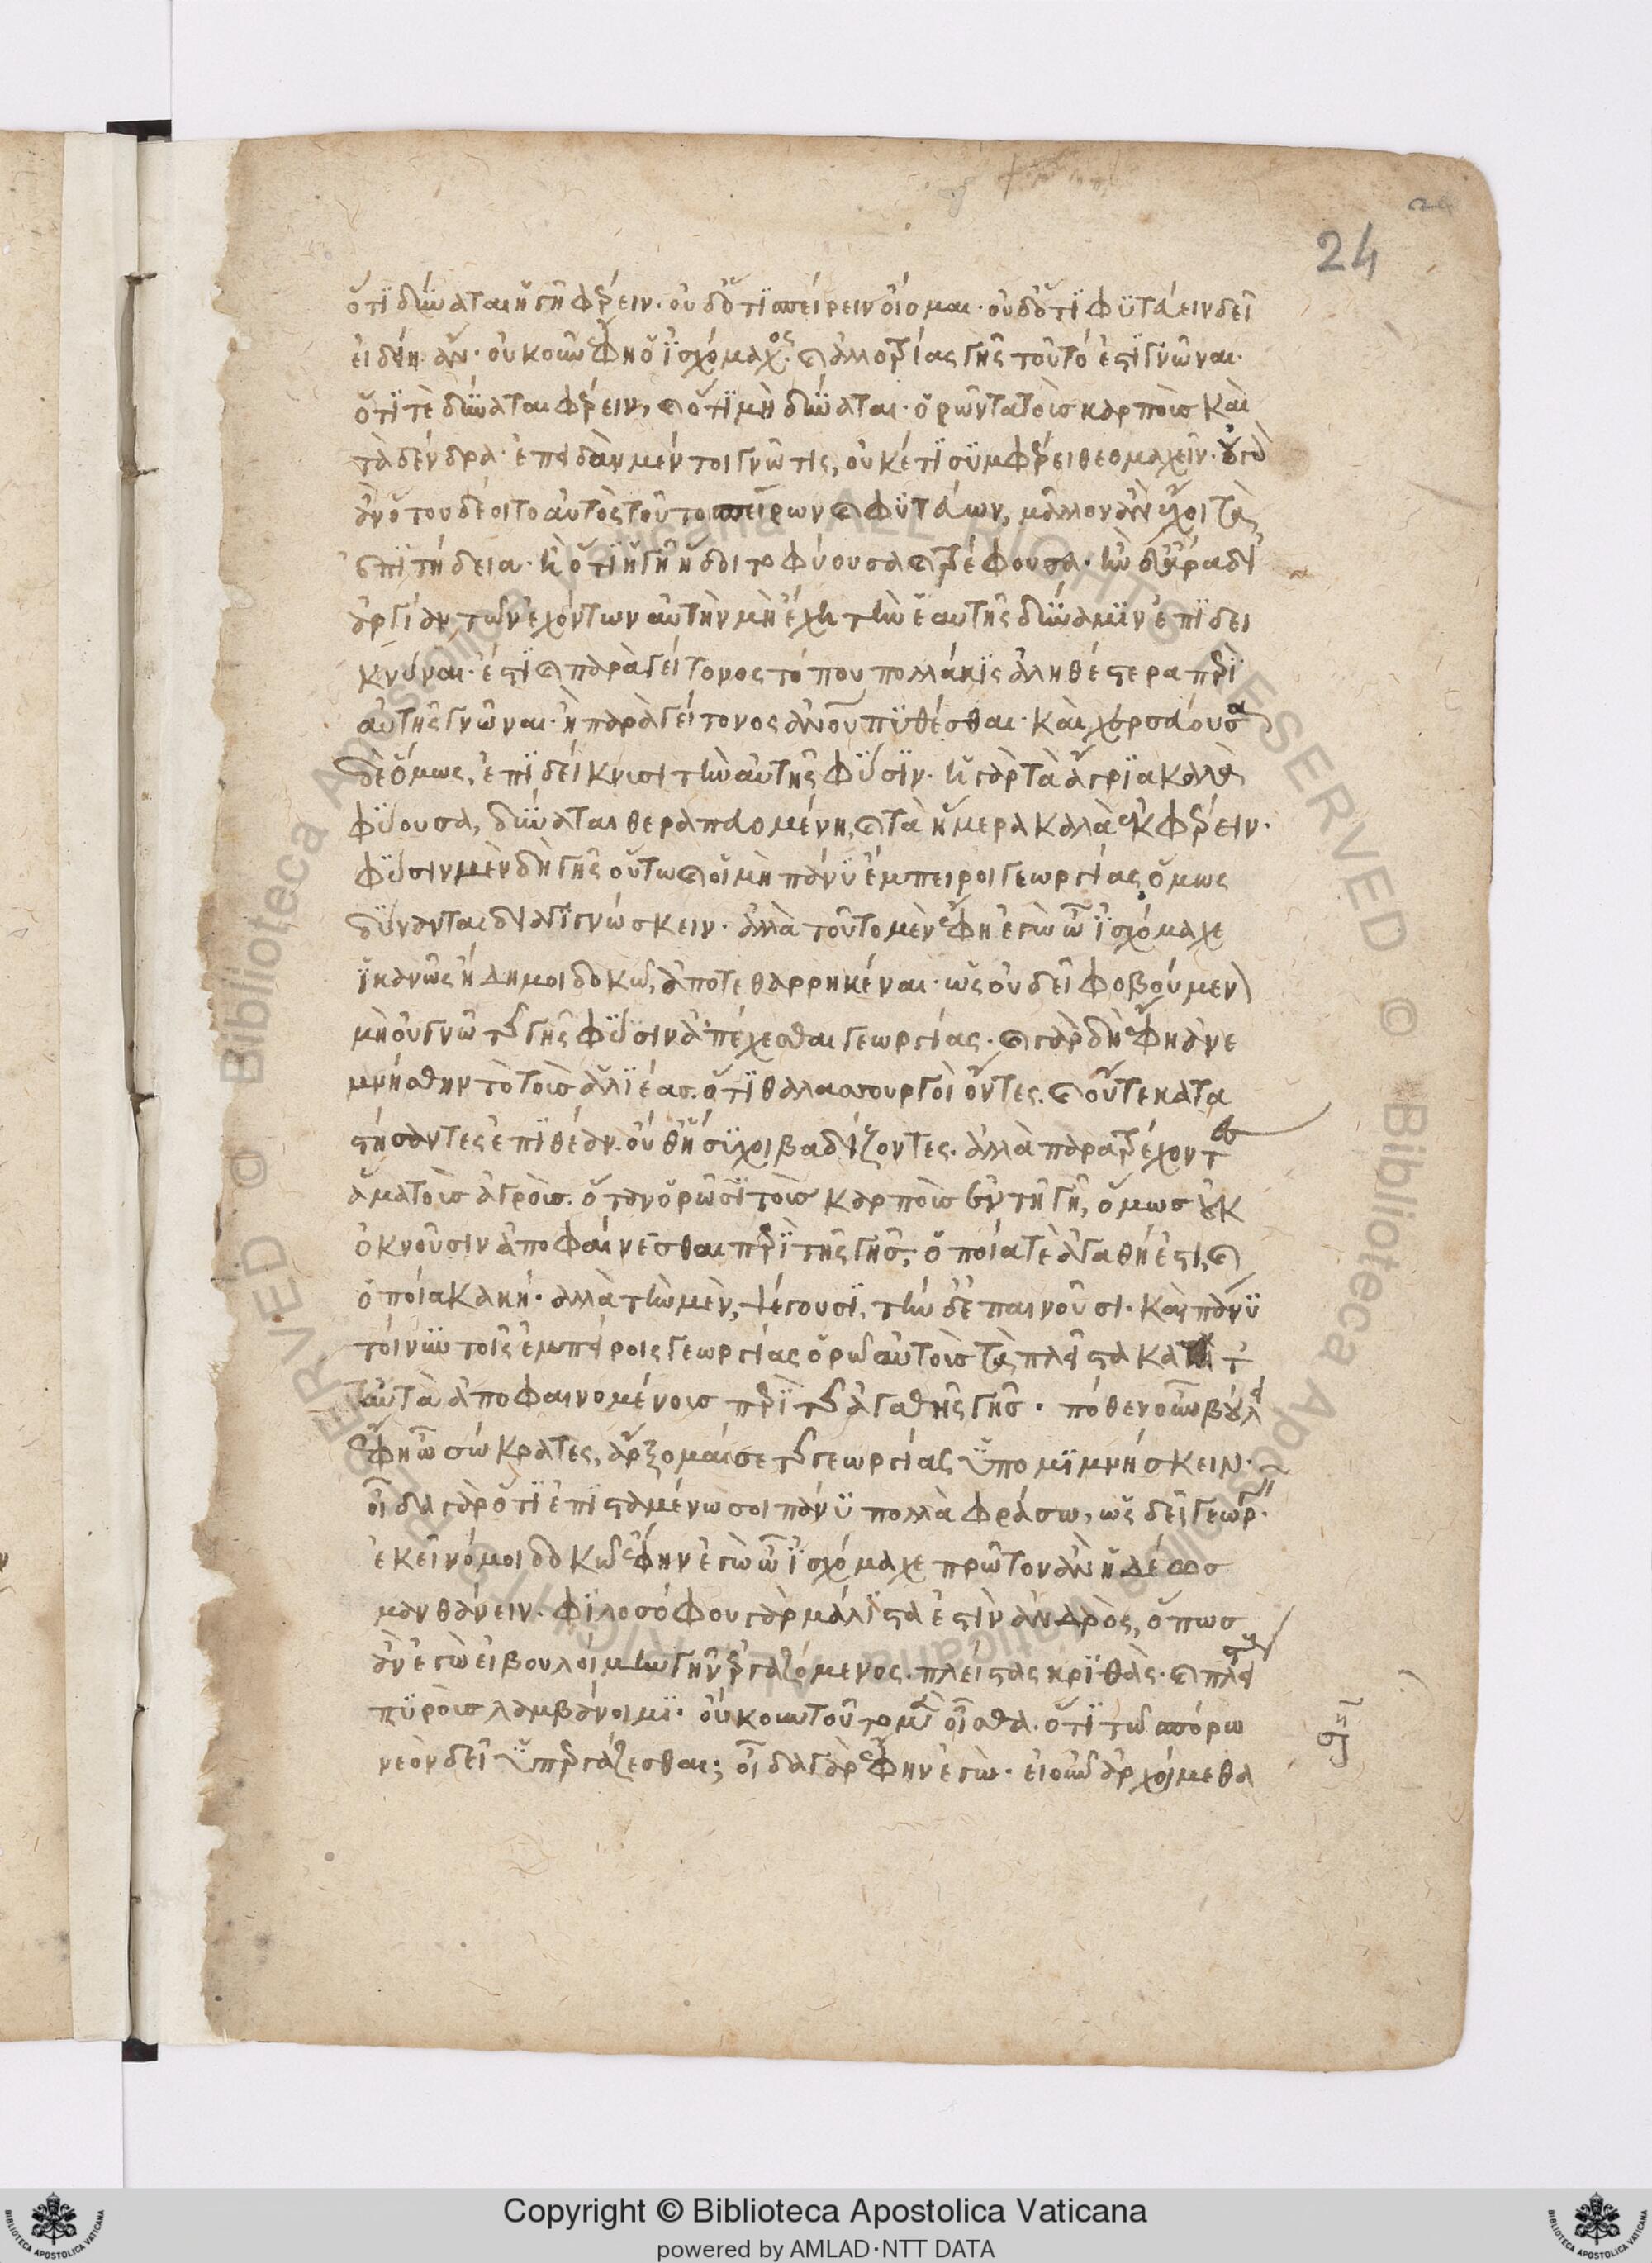 24
ὅτι δύναται ἡ γῆ φέρειν. οὐδ' ὅτι σπείρειν οἴομαι. οὐδ' ὅτι φυτεύειν δεῖ
εἰδείη ἄν. οὐκοῦν ἔφη ὁ ἰσχόμαχος. καὶ ἀλλοτρίας γῆς τοῦτό ἐστι γνῶναι.
ὅτι τὲ δύναται φέρειν, καὶ ὅτι μὴ δύναται. ὁρῶντα τοὺς καρποὺς καὶ
τὰ δένδρα. ἐπειδὰν μέν τοι γνῶ τις, οὐκέτι συμφέρει θεομαχεῖν. οὐ γὰρ
ἂν ὅτου δέοιτο αὐτὸς τοῦτο σπείρων καὶ φυτεύων, μᾶλλον ἂν ἔχοι τὰ
ἐπιτήδεια. ἢ ὅτι ἡ γῆ ἥδοιτο φύουσα καὶ τρέφουσα. ἢν δ' ἄρα δι'
ἀργίαν τῶν ἐχόντων αὐτὴν μὴ ἔχη τὴν ἑαυτῆς δύναμιν ἐπιδει
κνύναι. ἔστι καὶ παρὰ γείτονος τόπου πολλάκις ἀληθέστερα περὶ
αὐτῆς γνῶναι. ἢ παρὰ γείτονος ἀνθρώπου πυθέσθαι. καὶ χερσεύουσα
δὲ ὅμως, ἐπιδείκνυσι τὴν αὐτῆς φύσιν. ἡ γὰρ τὰ ἄγρια καλὰ
φύουσα, δύναται θεραπευομένη, καὶ τὰ ἥμερα καλὰ ἐκφέρειν.
φύσιν μὲν δὴ γῆς οὕτω καὶ οἱ μὴ πάνυ ἔμπειροι γεωργίας ὅμως
δύνανται διαγιγνώσκειν. ἀλλὰ τοῦτο μὲν ἔφην ἐγὼ ὦ ἰσχόμαχε
ἱκανῶς ἤδη μοι δοκῶ, ἀποτεθαρρηκέναι. ὡς οὐ δεῖ φοβούμενον
μὴ οὐ γνῶ τῆς γῆς φύσιν ἀπέχεσθαι γεωργίας. καὶ γὰρ δὴ ἔφην ἀνε
μνήσθην τὸ τοὺς ἁλιέας. ὅτι θαλασσουργοὶ ὄντες. καὶ οὔτε κατα
στήσαντες ἐπὶ θέαν. οὔθ' ἥσυχοι βαδίζοντες. ἀλλὰ παρατρέχοντες
ἅμα τοὺς ἀγροὺς. ὅταν ὁρῶσι τοὺς καρποὺς ἐν τῆ γῆ, ὅμως οὐκ
ὀκνοῦσιν ἀποφαίνεσθαι περὶ τῆς γῆς, ὁποία τὲ ἀγαθή ἐστι, καὶ
ὁποία κακή. ἀλλὰ τὴν μὲν, ψέγουσι, τὴν δ' ἐπαινοῦσι. καὶ πάνυ
τοίνυν τοῖς ἐμπείροις γεωργίας ὁρῶ αὐτοὺς τὰ πλεῖστα κατὰ
ταὐτὰ ἀποφαινομένους περὶ τῆς ἀγαθῆς γῆς. πόθεν οὖν βούλει
ἔφη ὦ σώκρατες, ἄρξομαί σε τῆς γεωργίας ὑπομιμνήσκειν.
οἶδα γὰρ ὅτι ἐπισταμένω σοι πάνυ πολλὰ φράσω, ὡς δεῖ γεωργεῖν.
ἐκεῖνό μοι δοκῶ ἔφην ἐγὼ ὦ ἰσχόμαχε πρῶτον ἂν ἡδέως
μανθάνειν. φιλοσόφου γὰρ μάλιστα ἐστὶν ἀνδρὸς, ὅπως
ἂν ἐγὼ εἰ βουλοίμην γῆν ἐργαζόμενος. πλείστας κριθὰς. καὶ πλείστους
πυροὺς λαμβάνοιμι. οὐκοῦν τοῦτο μὲν οἶσθα. ὅτι τῶ σπόρω
νεὸν δεῖ ὑπεργάζεσθαι; οἶδα γὰρ ἔφην ἐγὼ. εἰ οὖν ἀρχοίμεθα